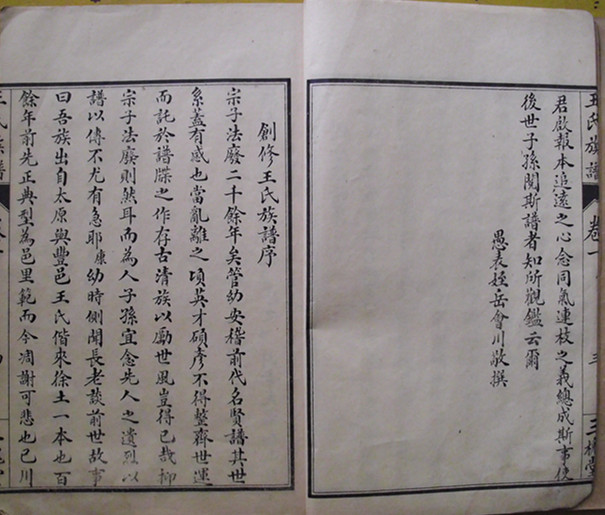 王氏族譜
卷一
三
三槐堂
君啟報本追遠之心念同氣連枝之義總成斯事使
後世子孫閱斯譜者知所觀鑑云爾
愚表姪岳會川敬撰
創修王氏族譜序
宗子法廢二十餘年矣管幼安稽前代名賢譜其世
系蓋有感也當亂離之頃英才碩彥不得整齊世運
而託於譜牒之作存古清族以勵世風豈得已哉抑
宗子法廢則然耳而為人子孫宜念先人之遺烈以
譜以傳不尤有急耶康幼時側聞長老談前世故事
曰吾族出自太原與豐邑王氏偕來徐土一本也百
餘年前先正典型為邑里範而今凋謝可悲也已川
王氏族譜
卷一